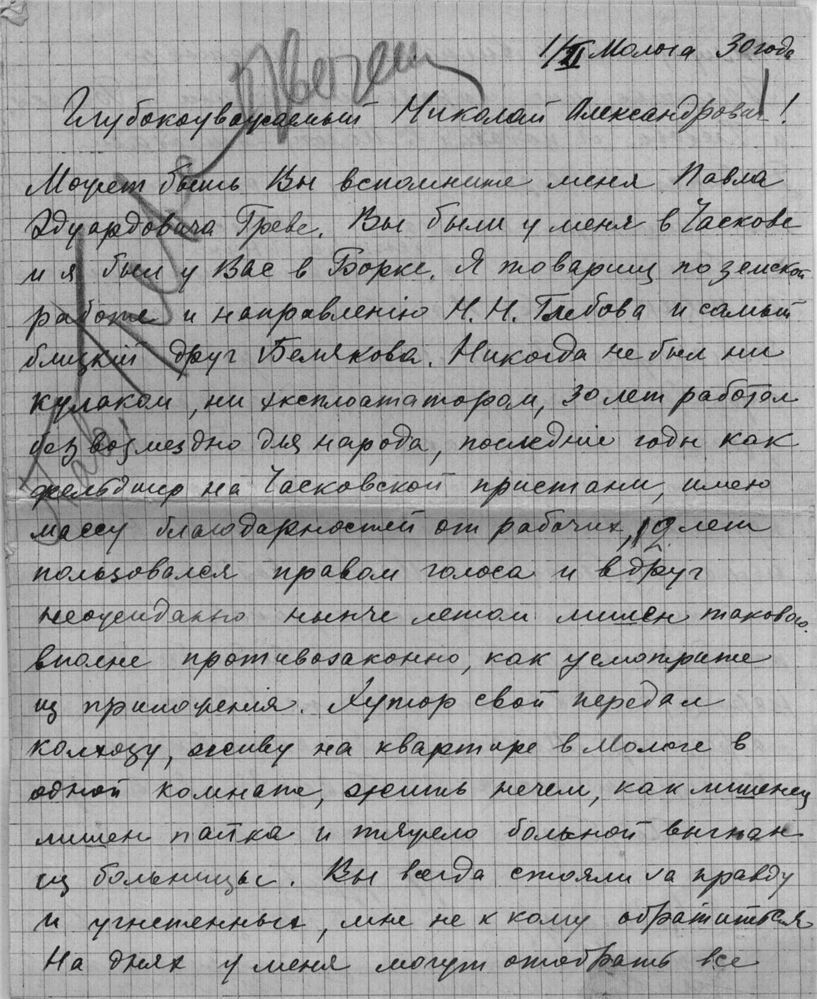 1/II Молога 30 года
Глубокоуважаемый Николай Александрович!
Может быть Вы вспомните меня Павла
Эдуардовича Греве. Вы были у меня в Часкове
и я был у Вас в Борке. Я товарищ по земской
работе и направленію Н. Н. Глебова и самый
близкій друг Белякова. Никогда не был ни
кулаком, ни эксплоататором, 30 лет работал
безвозмездно для народа, последніе годы как
фельдшер на Часковской пристани, имею
массу благодарностей от рабочих, 12 лет
пользовался правом голоса и вдруг
неожиданно нынче летом лишен такового.
вполне противозаконно, как усмотрите
из приложенія. Хутор свой передал
колхозу, живу на квартире в Мологе в
одной комнате, жить нечем, как лишенец
лишен пайка и тяжело больной выгнан
из больницы. Вы всегда стояли за правду
и угнетенных, мне не к кому обратиться
На днях у меня могут отобрать все